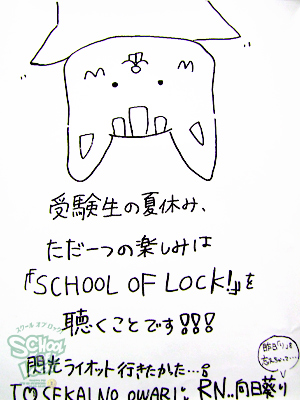 受験生の夏休み、
ただ一つの楽しみは
「SCHOOL OF LOCK!」を
聴くことです!!!
スクール オブ ロック
SCHOOL OF
閃光ライオット行きたかた…。
昨日「り」を
SEKAI NO OWARI RN..向日葵り